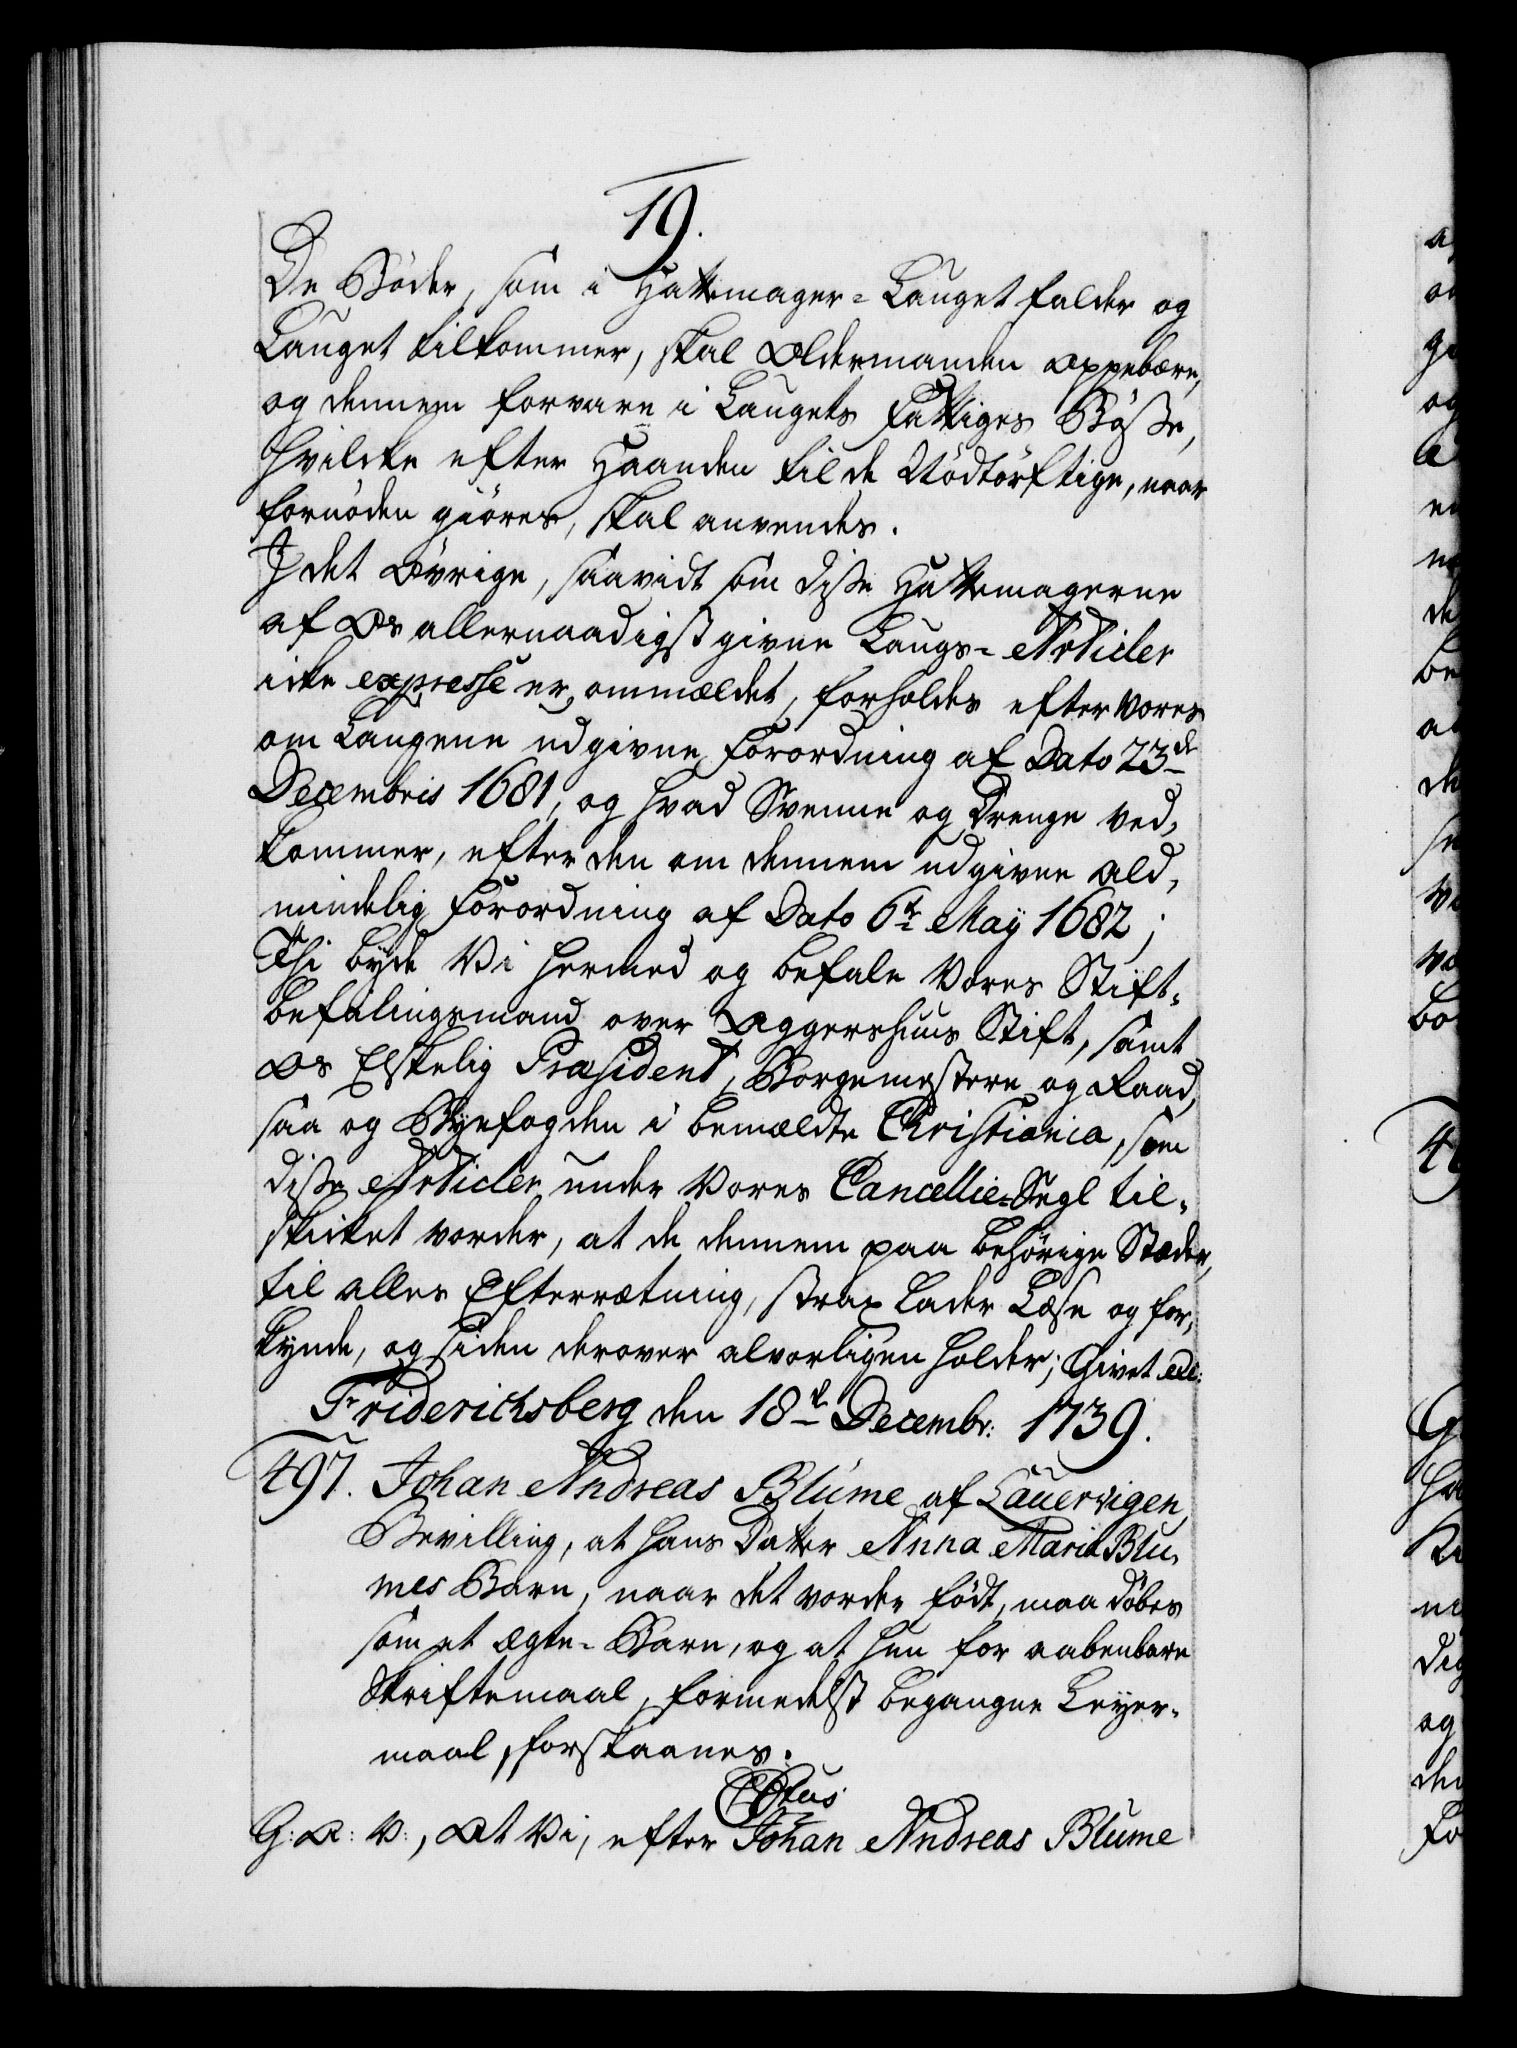 19.
De Bøder, som i Hattemager-Lauget falder og
Lauget tilkommer, skal Oldermanden oppebære,
og dennem forvare i Laugets Fattiges Bøsse,
hvilcke efter Haanden til de Nödtörftige, naar
fornöden giöres, skal anvendes.
J det Övrige, saavidt som disse Hattemagerne
af Os allernaadigst givne Laugs-Articler
icke expresse er ommældet, forholdes efter Vores
om Laugene udgivne Forordning af Dato 23de
Decembris 1681, og hvad Svenne og Drenge ved-
kommer, efter den om dennem udgivne Ald-
mindelig Forordning af Dato 6te Maÿ 1682;
Thi byde Vi hermed og befale Vores Stift-
befalingsmand over Aggershuus Stift, samt
Os Elskelig Præsident, Borgemestere og Raad,
saa og Byefogden i bemældte Christiania, som
disse Articler under Vores Cancellie-Segl til-
skicket vorder, at de dennem paa behörige Stæder,
til alles Efterretning, strax lader Læse og for-
kynde, og siden derover alvorligen holder; Givet etc:
Friderichsberg den 18de Decembr: 1739.
497. Johan Andreas Blume af Lauervigen,
Bevilling, at hans Datter Anna Maria Blu-
mes Barn, naar det vorder födt, maa döbes
som et ægte-Barn, og at hun for aabenbare
Skriftemaal, formedelst begangne Leyer-
maal, forskaanes.
C Stus
G: A: V:, At Vi, efter Johan Andreas Blume